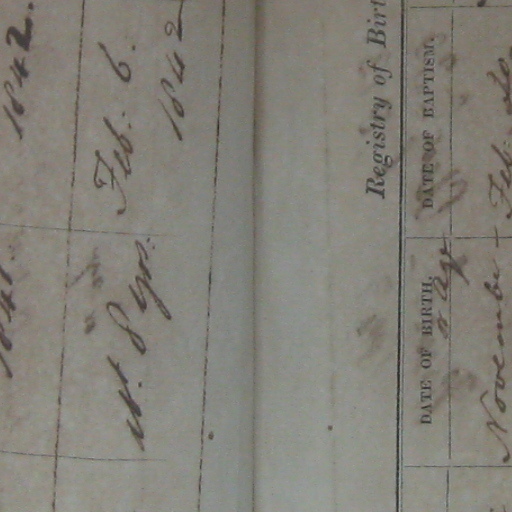 1841. 1842.
æt. 8 yrs. Feb. 6.
1842
Registry of Birt
DATE OF BIRTH. DATE OF BAPTISM.
or Age
November - Feb. 20.